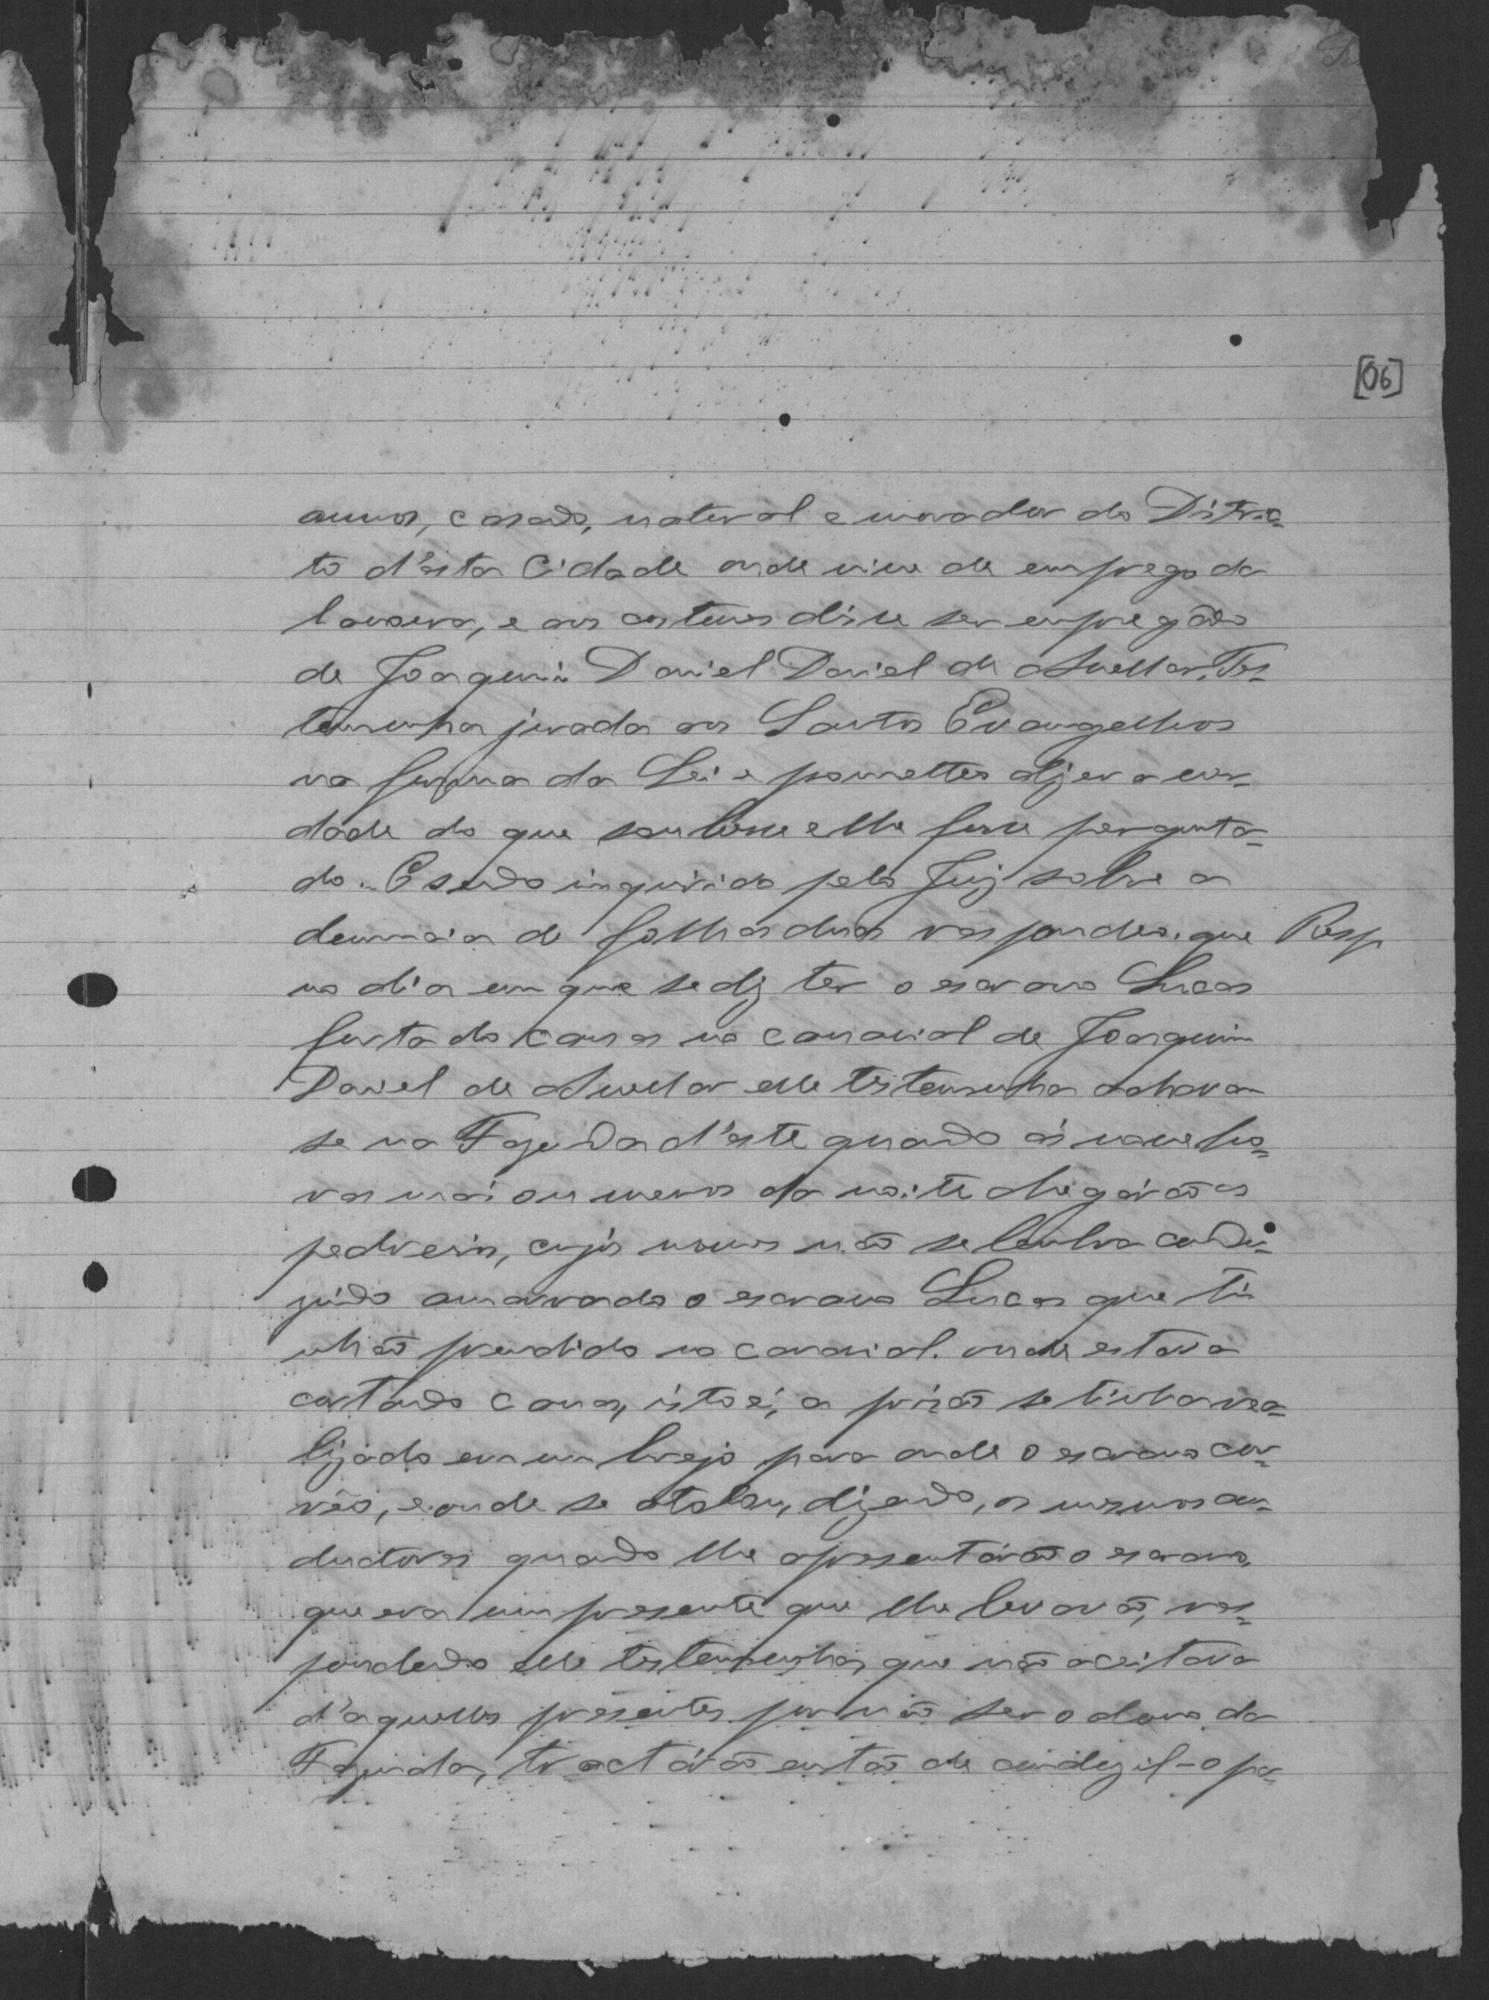 [06]
annos, casado, natural e morador do Distric=
to d'esta Cidade onde vive de emprego da
lavoura, e aos costumes disse ser empregado
de Joaquim Daniel Daniel de Avellar. Tes=
temunha jurada aos Santos Evangelhos
na forma da Lei e prometteo dizer a ver-
dade do que soubesse e lhe fosse pergunta=
do. E sendo inquirido pelo Juiz sobre a
denuncia de folhas duas respondeo. que Resp
no dia em que se diz ter o escravo Lucas
furtado canas no canavial de Joaquim
Daniel de Avellar elle testemunha achava
se na Fazenda d'este quando ás nove ho=
ras mais ou menos da noite chegárão os
pedreiros, cujos nomes não se lembra condu=
zindo amarrado o escravo Lucas que ti
nhão prendido no canavial. onde estava
cortando canas, isto é, a prisão se tinha rea=
lizado em um brejo para onde o escravo cor=
rêo, e onde se atolou, dizendo, os mesmos con=
ductores quando lhe apresentárão o escravo,
que era um presente que lhe levavão, res=
pondendo elle testemunha que não aceitava
d'aquelles presentes por não ser o dono da
Fazenda, tractárão então de conduzil-o pa=